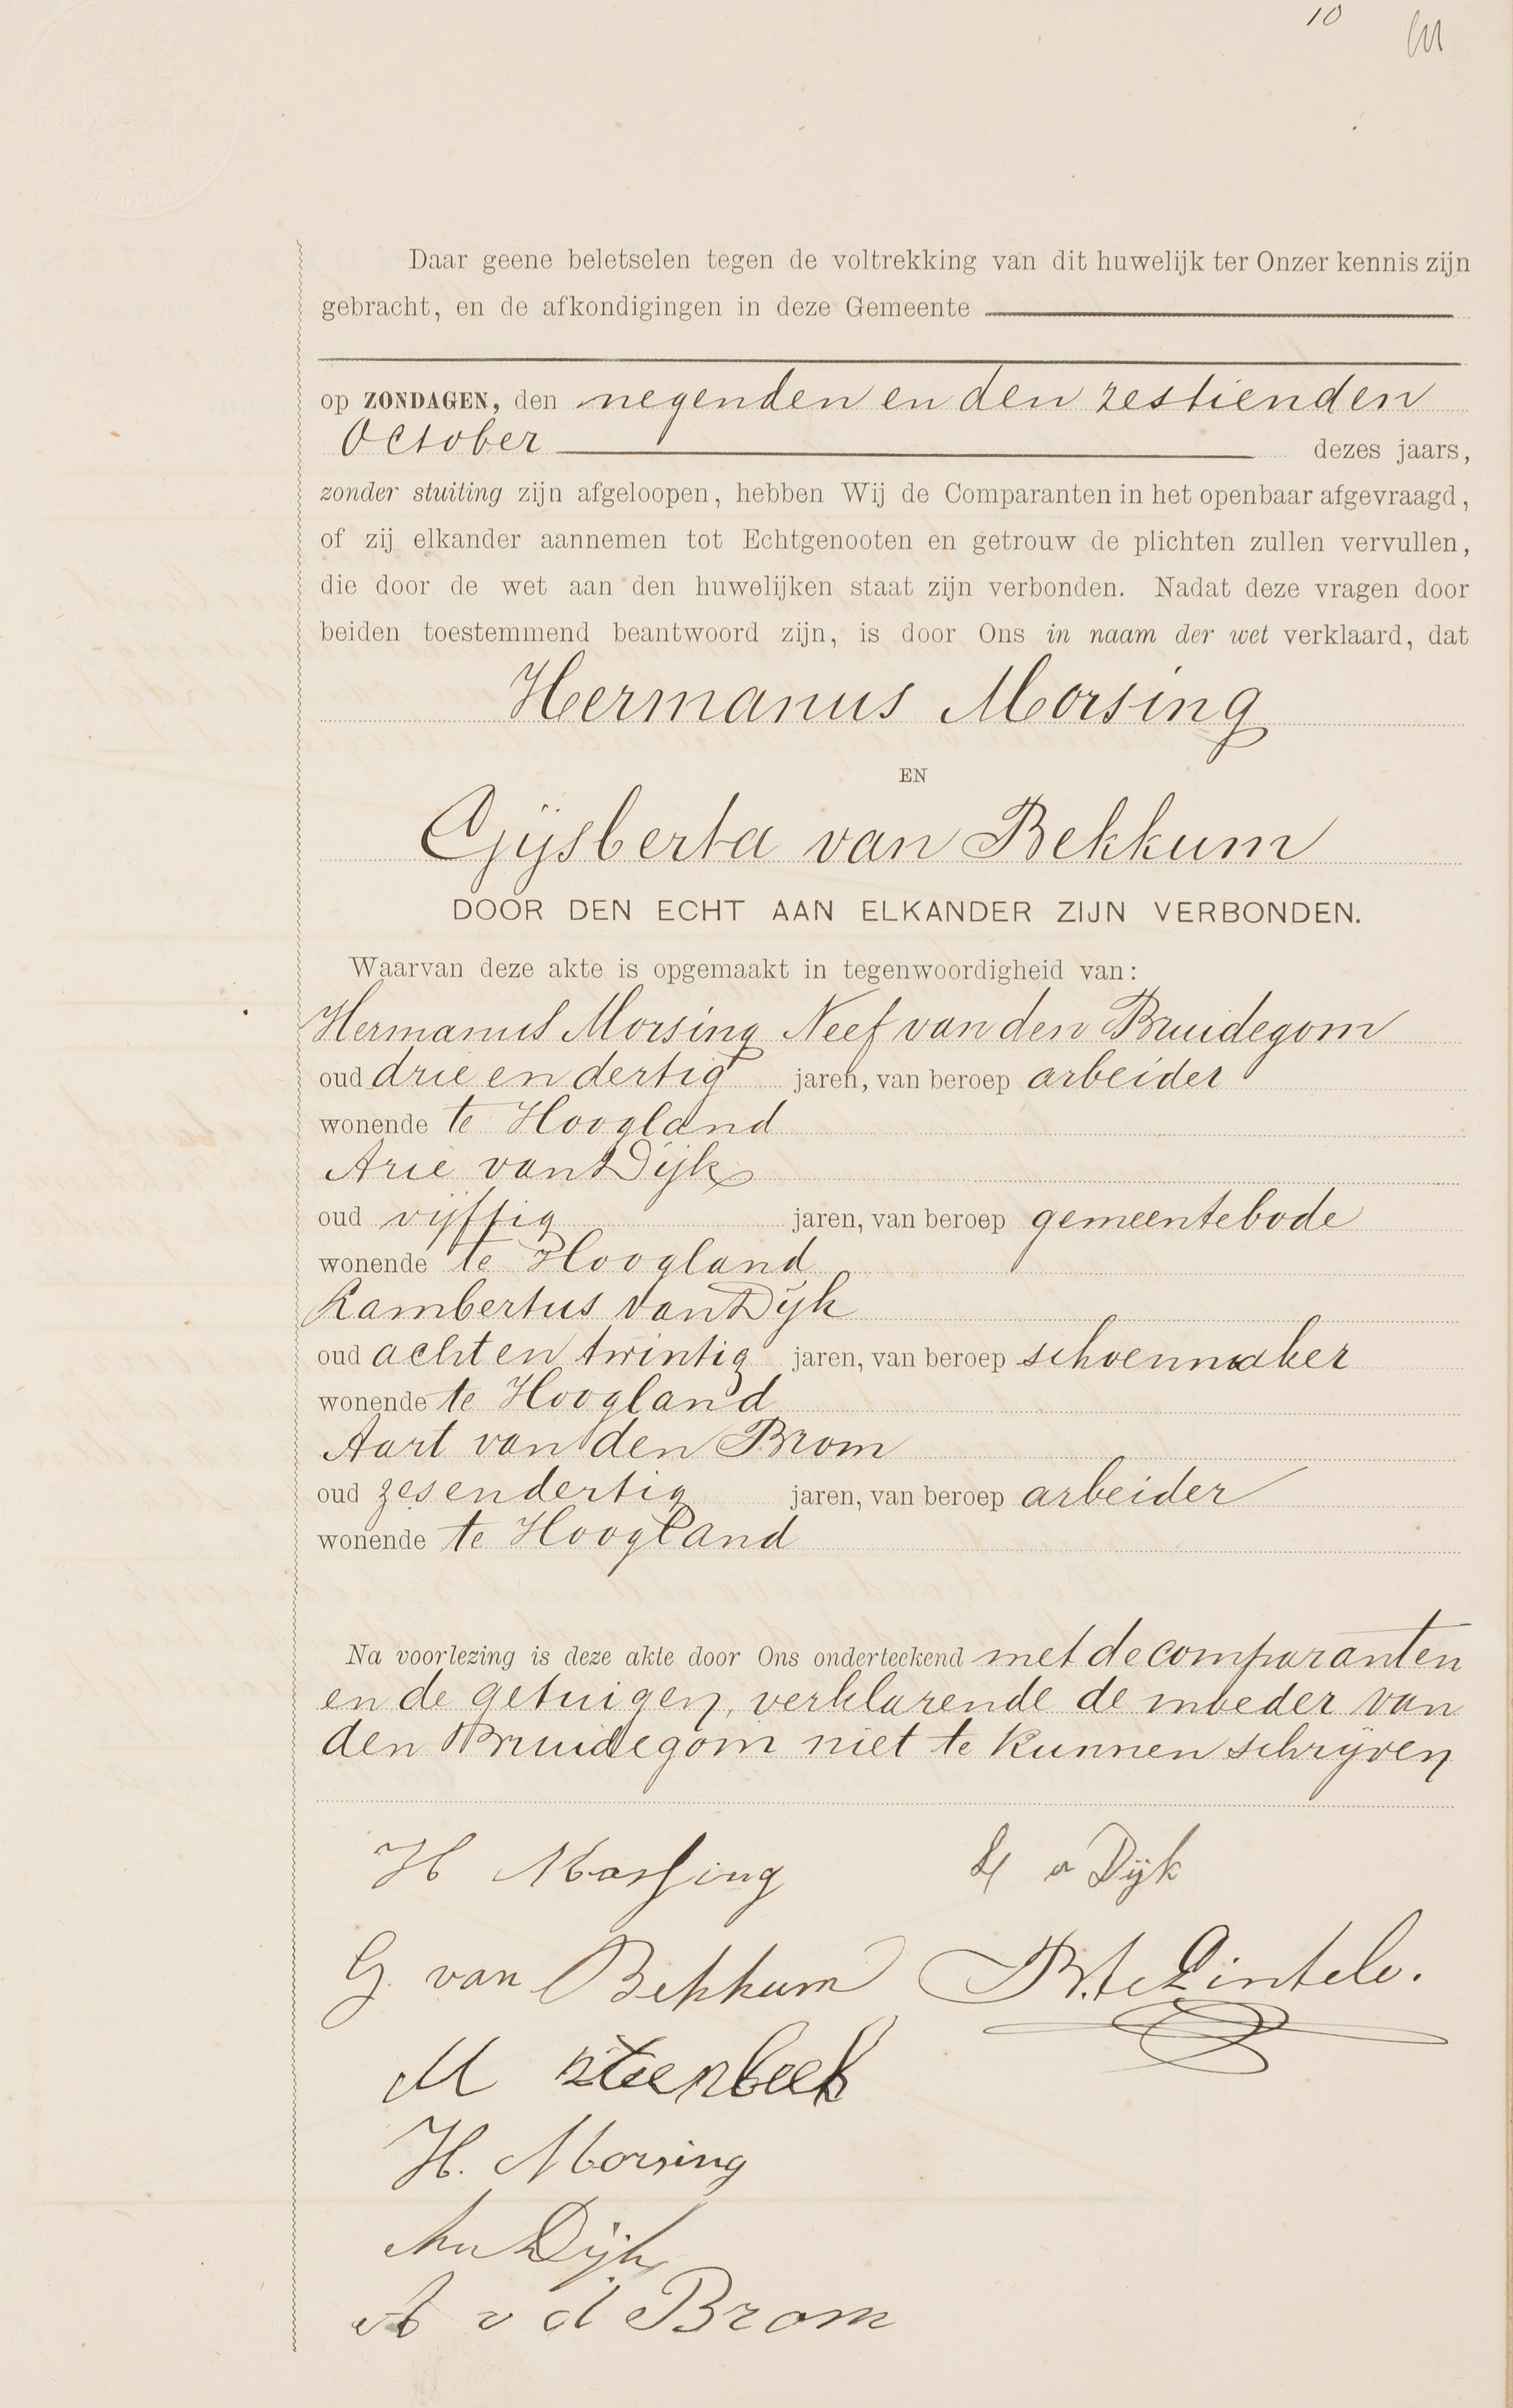 10
Daar geene beletselen tegen de voltrekking van dit huwelijk ter Onzer kennis zijn
gebracht, en de afkondigingen in deze Gemeente
op ZONDAGEN, den negenden en den zestienden
October dezes jaars,
zonder stuiting zijn afgeloopen, hebben Wij de Comparanten in het openbaar afgevraagd,
of zij elkander aannemen tot Echtgenooten en getrouw de plichten zullen vervullen,
die door de wet aan den huwelijken staat zijn verbonden. Nadat deze vragen door
beiden toestemmend beantwoord zijn, is door Ons in naam der wet verklaard, dat
Hermanus Morsing
EN
Gijsberta van Bekkum
DOOR DEN ECHT AAN ELKANDER ZIJN VERBONDEN.
Waarvan deze akte is opgemaakt in tegenwoordigheid van:
Hermanus Morsing Neef van den Bruidegom
oud drie en dertig jaren, van beroep arbeider
wonende te Hoogland
Arie van Dijk
oud vijftig jaren, van beroep gemeentebode
wonende te Hoogland
Lambertus van Dijk
oud acht en twintig jaren, van beroep schoenmaker
wonende te Hoogland
Aart van den Brom
oud zesendertig jaren, van beroep arbeider
wonende te Hoogland
Na voorlezing is deze akte door Ons onderteekend met de comparanten
en de getuigen, verklarende de moeder van
den Bruidegom niet te kunnen schrijven
H Morsing
v Dijk
G. van Bekkum
M steenbeek
H. Morsing
Dijk
A v d Brom